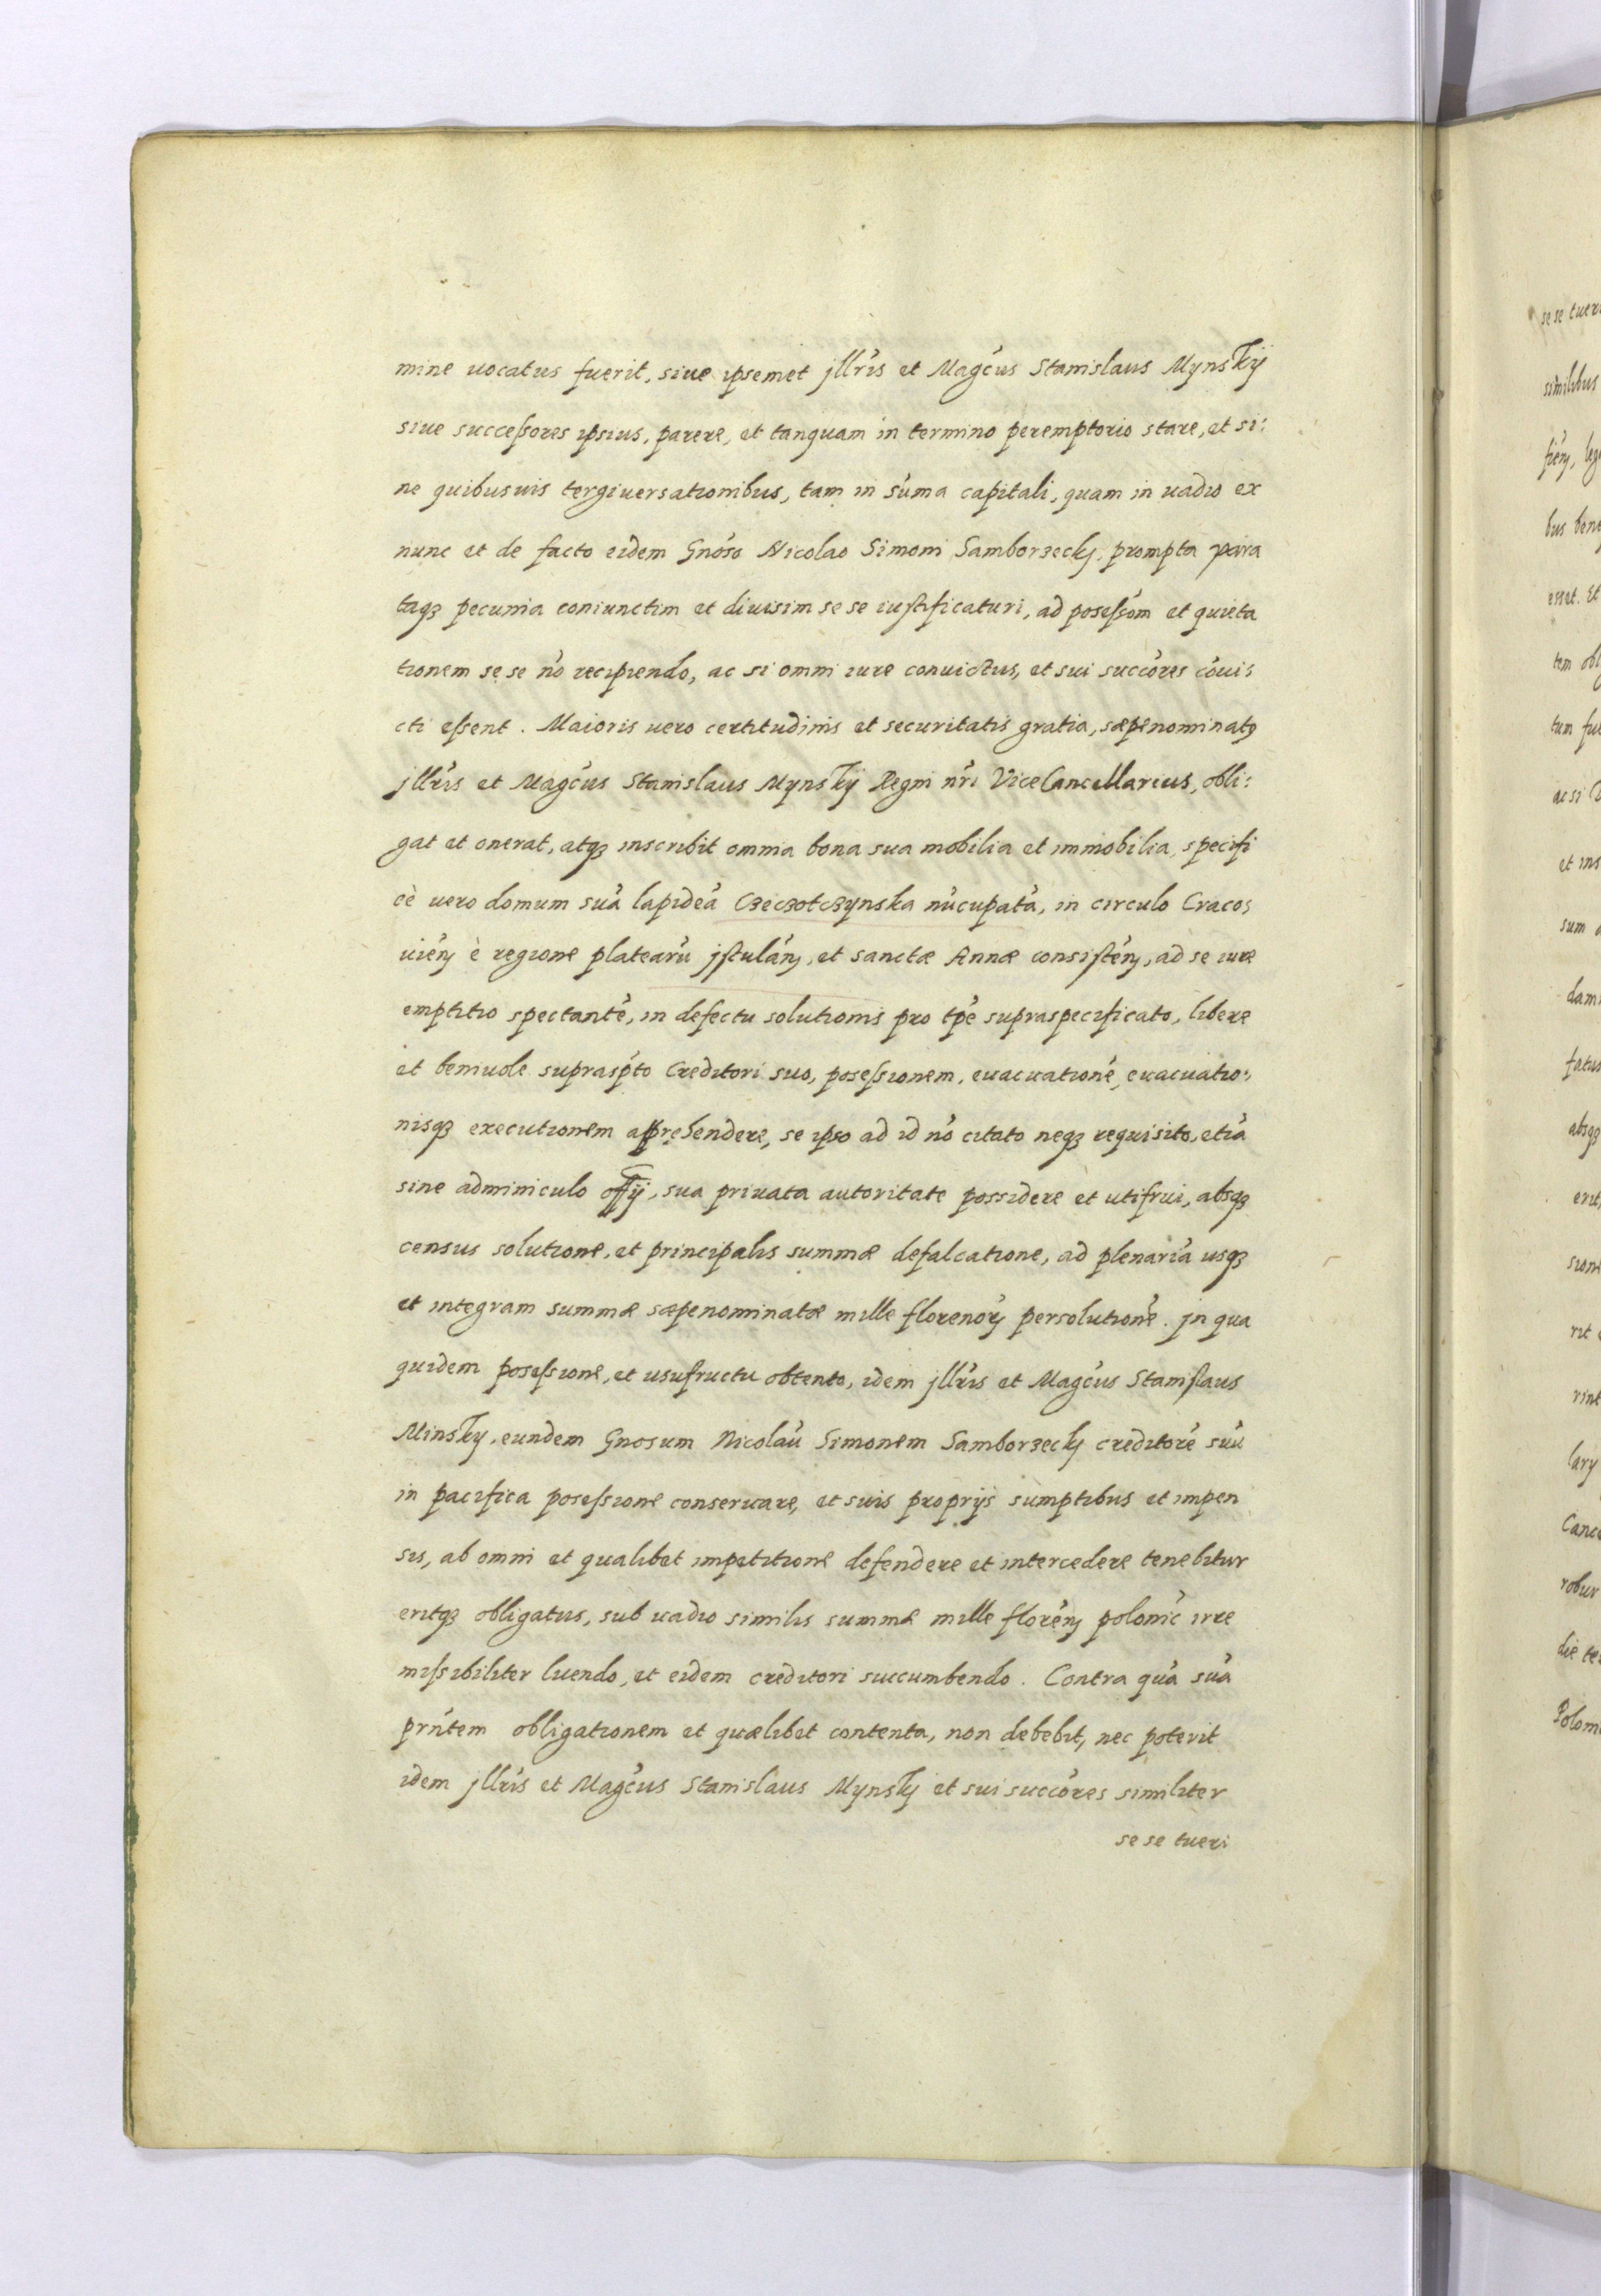 mine uocatus fuerit, siue ipsemet jllris et Magcus Stanislaus Mynskij
siue successores ipsius, parere, et tanquam in termino peremptorio stare, et si:
ne quibusuis tergiuersationibus, tam in súma capitali, quam in uadio ex
nunc et de facto eidem Gnoso Nicolao Simoni Samborzeckj, prompta para
taqз pecunia coniunctim et diuisim se se iustificaturi, ad posessóm et quieta
tionem se se nó recipiendo, ac si omni iure conuictus, et sui succóres cóui:
cti essent. Maioris uero certitudinis et securitatis gratia, sæpenominatꝰ
jllris et Magcus Stanislaus Mynskij Regni nri ViceCancellarius, obli:
gat et onerat, atqз inscribit omnia bona sua mobilia et immobilia, specifi
cè uero domum suá lapideá Czeczotczynska núcupatá, in circulo Craco:
uién è regione platearú jstulán, et sanctæ Annæ consistén, ad se iure
emptitio spectanté, in defectu solutionis pro tpé supraspecificato, libere
et beniuole suprasṕto Creditori suo, posessionem, euacuationé, euacuatio:
nisqз executionem apprehendere, se ipso ad id nó citato neqз requisito, etiá
sine adminiculo offij, sua priuata autoritate possidere et utifrui, absqз
census solutione, et principalis summæ defalcatione, ad plenariá usqз
et integram summæ sæpenominatæ mille florenorꝫ persolutioné. jn qua
quidem posessione, et usufructu obtento, idem jllris et Magcus Stanislaus
Minsky, eundem Gnosum Nicolaú Simonem Samborzeckj creditoré suú
in pacifica posessione conseruare, et suis proprijs sumptibus et impen
sis, ab omni et qualibet impetitione defendere et intercedere tenebitur
eritqз obligatus, sub uadio similis summæ mille florén polonic irre
missibiliter luendo, et eidem creditori succumbendo. Contra quá suá
prńtem obligationem et quælibet contenta, non debebit, nec poterit
idem jllris et Magcus Stanislaus Mynskj et sui succóres similiter
se se tueri